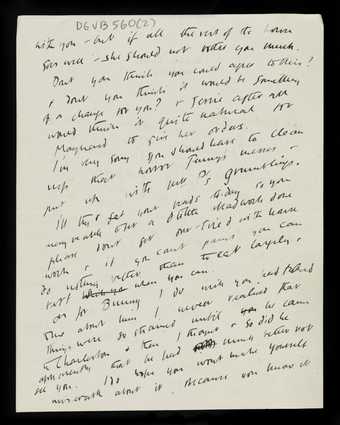 DGVB 560(2)
with you – but if all the rest of the house
goes well – she should not bother you much.
Don't you think you could agree to this?
& don't you think it would be something
of a change for you? & Jessie after all
would think it quite natural for
Maynard to give her orders.
I'm very sorry you should have to clean
up that horror 's messes &
put up with grumblings.
I'll try & get your beads today so you
may be able to a little beadwork done
please don't get over-tired with house
work & if you can't paint you can
do nothing better than to eat largely &
rest when you can.
as for Bunny I do wish you had told
me about him I never realised that
things were so strained until he came
to Charleston & then I thought & so did he
apparently that he had much better not
see you. I do hope you won't make yourself
miserable about it. Because you know it